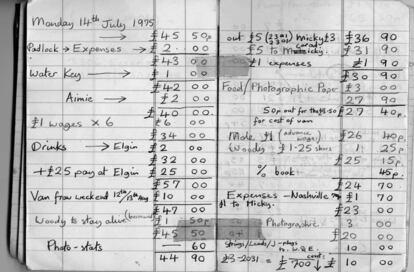 Monday 14th July 1975
→ £45 50p
Padlock → Expenses → £2 . 00
£43 00
Water Key → £1 00
£42 00
Aimie → £2 00
£40 00
£1 wages × 6 £6 00
£34 00
Drinks → Elgin £2 00
£32 00
+ £25 pay at Elgin £25 00
£57 00
Van frau weekend 12th/13th £10 00
£47 00
Woody to stay alive £1 50p
£45 50
Photo-stats — 60
44 90
out £5 Micky £3 £36 90
£5 to Micky £31 90
£1 expenses £1 90
£30 90
Food/Photographic Pape £3 00
27 90
50p out for £27 40p
for cost of van
Mole £1 (advance wage) £26 40
Woody £1.25 1 25
£25 15p
% book 45p
£24 70
Expenses — Nashville £1 70
£1 to Micky. £23 00
Photographic 3 00
£20 00
Strings/Leads/J-plugs 10 00
£3-2031 = £700 £10 00